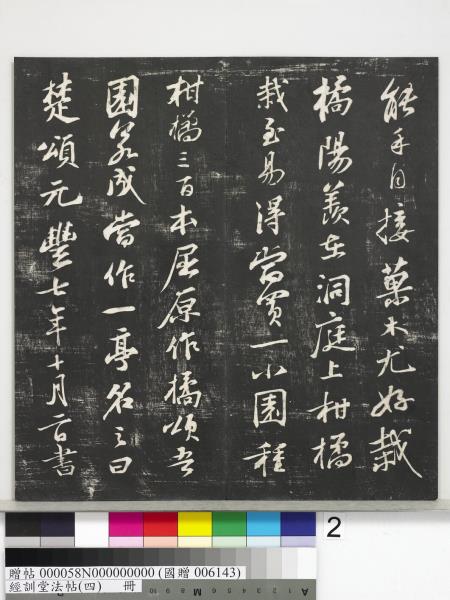 能手自接菓木尤好栽
橘陽羨在洞庭上柑橘
栽至易得當買一小園種
柑橘三百本屈原作橘頌吾
園若成當作一亭名之曰
楚頌元豐七年十月二日書
2
贈帖 000058N000000000 (國贈 006143)
經訓堂法帖(四) 冊